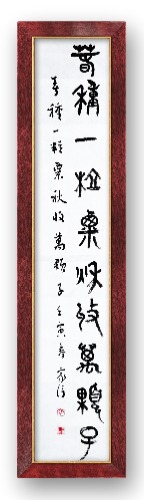 春種一粒粟秋收萬顆子
春種一粒粟秋收萬顆子壬寅年